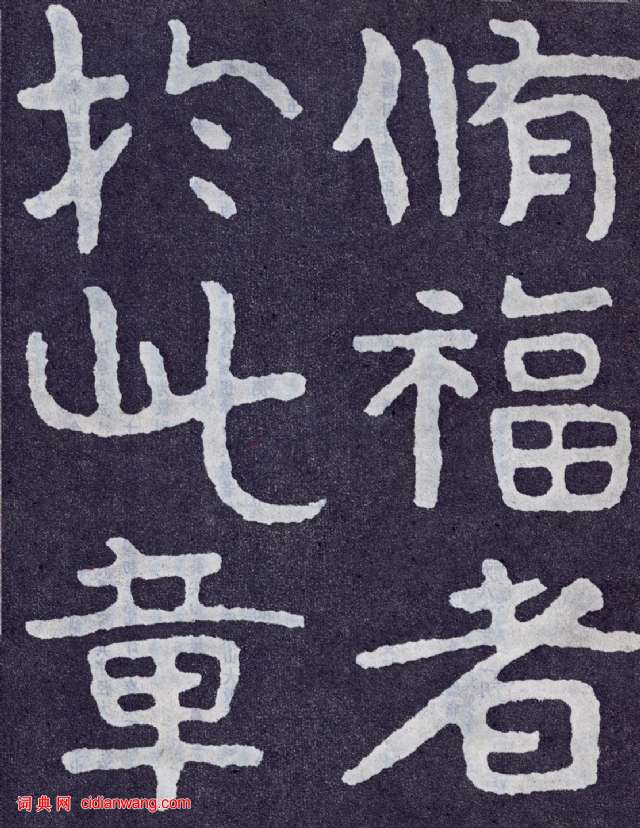 脩福者
於此章
词典网 cidianwang.com